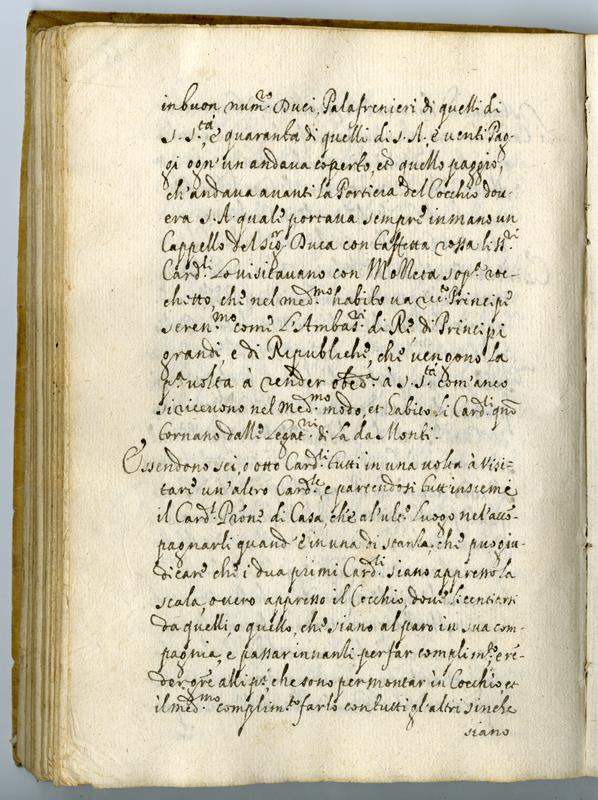 in buon num.ro Duci, Palafrenieri di quelli di
S. S.tà, e quaranta di quelli di S. A. e venti Pag-
gi ogn'un andava coperto, et quello paggio,
ch'andava avanti la Portiera del Cocchio dov-
era S. A. quale portava sempre in mano un
Cappello del Sig.r Duca con taffetta rossa li SS.ri
Card.li Lo visitavano con Mozzeta sop.a roc-
chetto, che nel med.mo habito va Principe
seren.mo come L'Ambas.ri di Re di Principi
grandi, e di Republiche, che vengono la
p.a volta à render obed.a à S. S.tà com'anco
si ricevono nel Med.mo modo, et habito li Card.li qñO
tornano dalle Legat.ni di la da Monti.
Essendono sei, o otto Card.li tutti in una volta à visi-
tare un'altro Card.le e partendosi tutt'insieme
il Card.l Prōne di Casa, che al'ult.o luogo nel'acco-
pagnarli quand'è in una di stanza, che può giu-
dicare che i dua primi Card.li siano appresso la
scala, o vero appresso il Cocchio, deve licentiarsi
da quelli, o quello, che siano al paro in sua com-
pagnia, e passar innanti per far complim.to, e rē-
der gr̄e all'int., che sono per montar in Cocchio, et
il med.mo complim.to farlo con tutti gl'altri sinche
siano